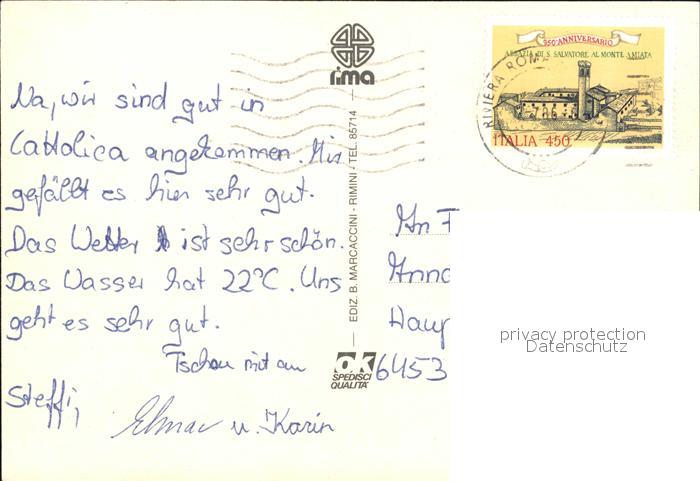 rima
950° ANNIVERSARIO
ABBAZIA DI S. SALVATORE AL MONTE AMIATA
ITALIA 450
RIVIERA ROM
Na, wir sind gut in
Cattolica angekommen. Mir
gefällt es hier sehr gut.
Das Wetter ist sehr schön.
Das Wasser hat 22°C. Uns
geht es sehr gut.
Tschau mit au
Steffi,
Elmar u. Karin
EDIZ. B. MARCACCINI - RIMINI - TEL. 85714
ok
SPEDISCI
QUALITÀ
An F
Anna
Haup
6453
privacy protection
Datenschutz